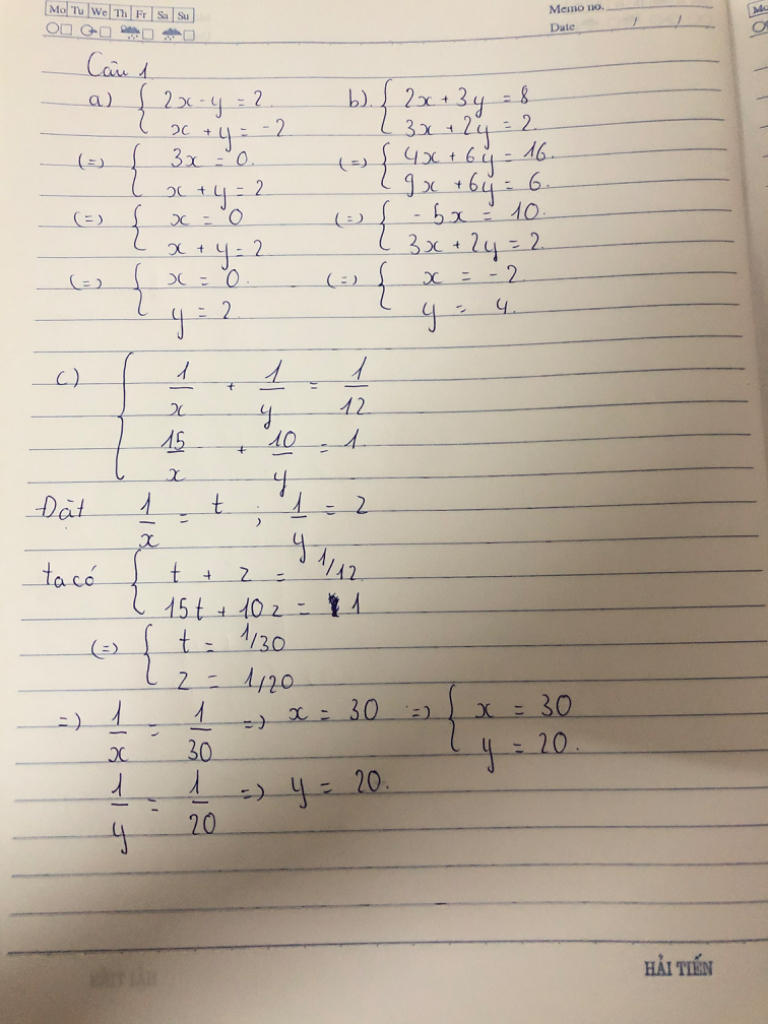 Mo Tu We Th Fr Sa Su
Memo no.
Date / /
Câu 1
a) { 2x - y = 2
x + y = -2
b). { 2x + 3y = 8
3x + 2y = 2
(=) { 3x = 0.
x + y = 2
(=) { 4x + 6y = 16.
9x + 6y = 6.
(=) { x = 0
x + y = 2
(=) { -5x = 10.
3x + 2y = 2
(=) { x = 0.
y = 2
(=) { x = -2
y = 4.
c) { 1/x + 1/y = 1/12
15/x + 10/y = 1
Đặt 1/x = t ; 1/y = z
ta có { t + z = 1/12
15t + 10z = 1
(=) { t = 1/30
z = 1/20
=) 1/x = 1/30 =) x = 30 =) { x = 30
y = 20.
1/y = 1/20 =) y = 20.
HẢI TIẾN